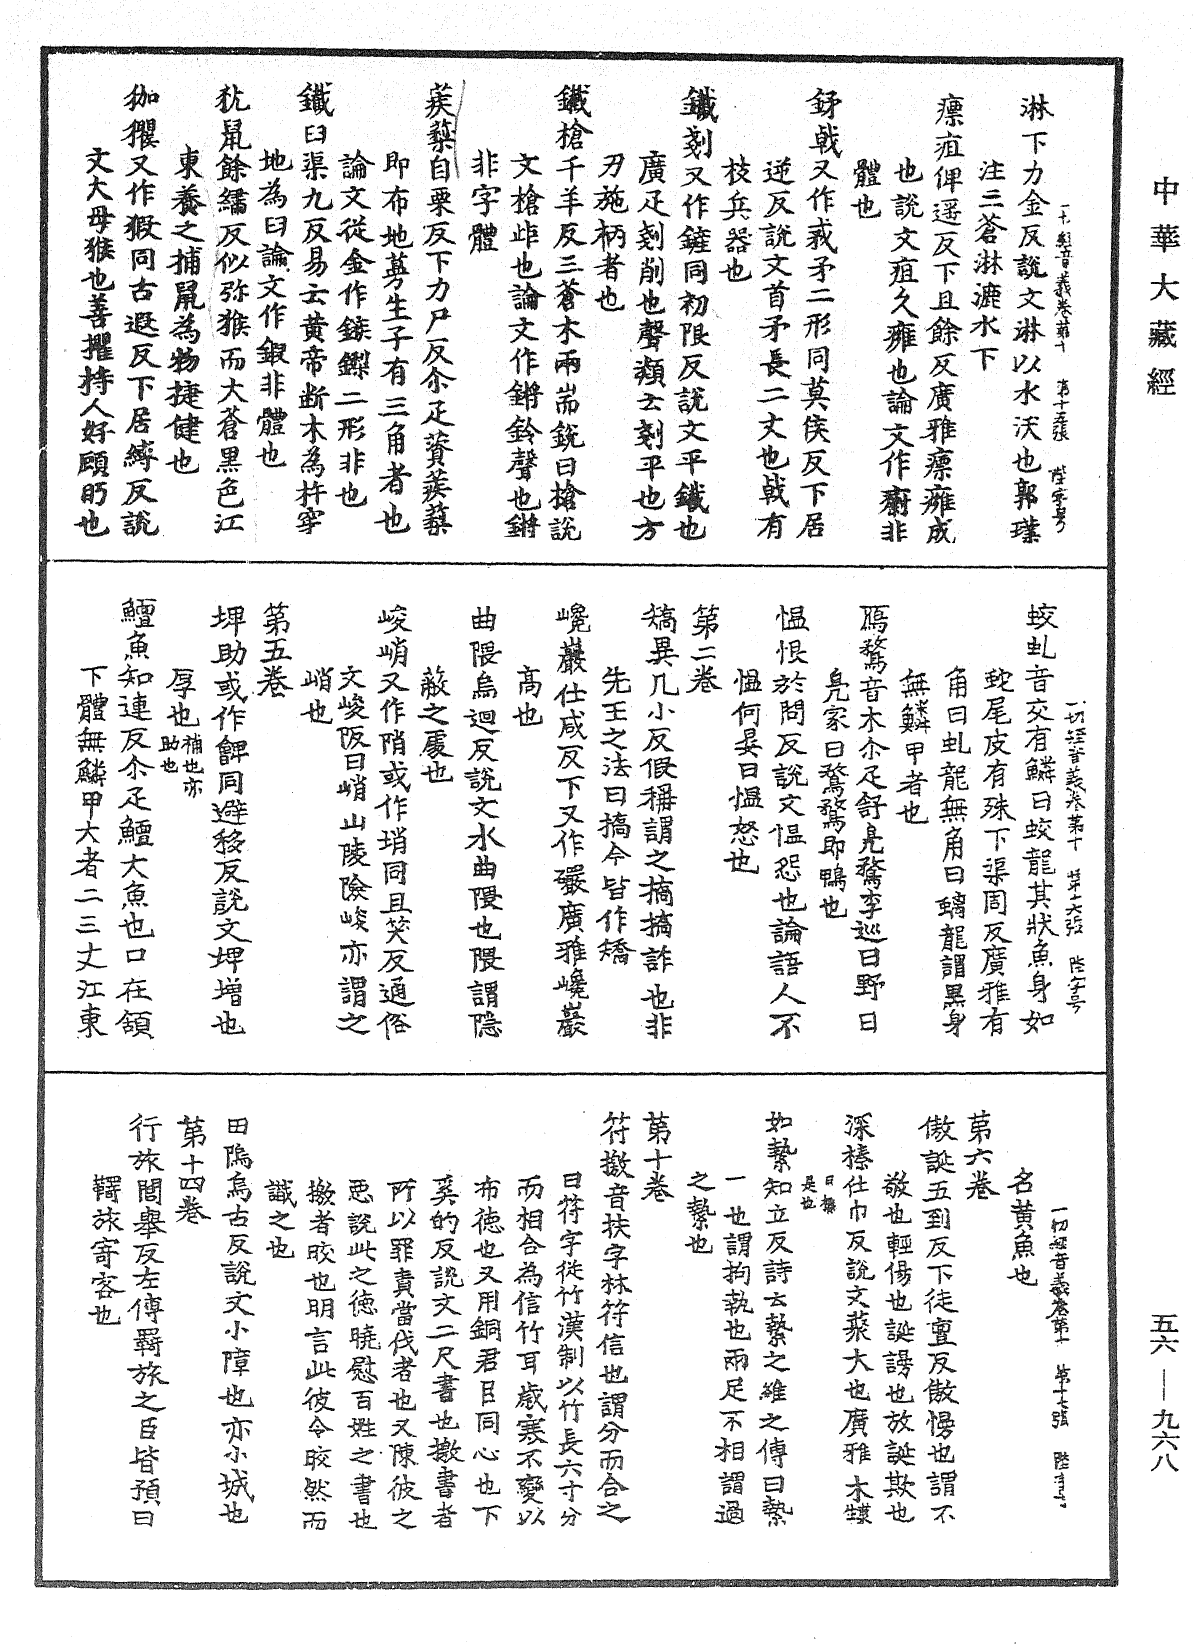 中華大藏經
一切經音義卷第十　第十五張　陸字号
淋下力金反説文淋以水沃也郭璞
注三蒼淋漉水下
瘭疽俾遥反下且餘反廣雅瘭癰成
也説文疽久癰也論文作𤻮非
體也
鉾戟又作𢦧矛二形同莫侯反下居
逆反説文首矛長二丈也戟有
枝兵器也
鐵剗又作鏟同初限反説文平鐵也
廣疋剗削也聲類云剗平也方
刃施柄者也
鐵槍千羊反三蒼木兩耑銳曰槍説
文槍歫也論文作鏘鈴聲也鏘
非字體
蒺䔧自栗反下力尸反尒疋薋蒺䔧
即布地蔓生子有三角者也
論文從金作鏃鑗二形非也
鐵臼渠九反易云黄帝断木為杵穿
地為臼論文作鍜非體也
犺鼠餘繡反似弥猴而大蒼黑色江
東養之捕鼠為物捷健也
狖玃又作猳同古遐反下居縛反説
文大母猴也善攫持人好顧眄也
一切經音義卷第十　第十六張　陸字号
蛟虬音交有鱗曰蛟龍其狀魚身如
蛇尾皮有珠下渠周反廣雅有
角曰虬龍無角曰螭龍謂黑身
無鱗甲者也
鴈鶩音木尒疋舒鳬鶩李巡曰野曰
鳬家曰鶩鶩即鴨也
慍恨於問反説文慍怨也論語人不
慍何晏曰慍怒也
第二卷
矯異几小反假稱謂之撟撟詐也非
先王之法曰撟今皆作矯
巉巖仕咸反下又作礹廣雅巉巖
高也
曲隈烏迴反説文水曲隈也隈謂隐
蔽之處也
峻峭又作陗或作䏴同且笑反通俗
文峻阪曰峭山陵險峻亦謂之
峭也
第五卷
埤助或作䤗同避移反説文埤增也
厚也補也亦助也
鱣魚知連反尒疋鱣大魚也口在頷
下體無鱗甲大者二三丈江東
一切經音義卷第十　第十七張　陸字号
名黄魚也
第六卷
傲誕五到反下徒亶反傲慢也謂不
敬也輕傷也誕謾也放誕欺也
深榛仕巾反説文藂大也廣雅木藂
曰榛是也
如縶知立反詩云縶之維之傳曰縶
一也謂拘執也兩足不相謂過
之縶也
第十卷
符檄音扶字林符信也謂分而合之
曰符字從竹漢制以竹長六寸分
而相合為信竹耳歲寒不變以
布德也又用銅君臣同心也下
奚的反説文二尺書也檄書者
所以罪責當伐者也又陳彼之
惡説此之德曉慰百姓之書也
檄者晈也明言此彼令晈然而
識之也
田隖烏古反説文小障也亦小城也
第十四卷
行旅閭舉反左傳羇旅之臣皆預曰
羇旅寄客也
五六—九六八